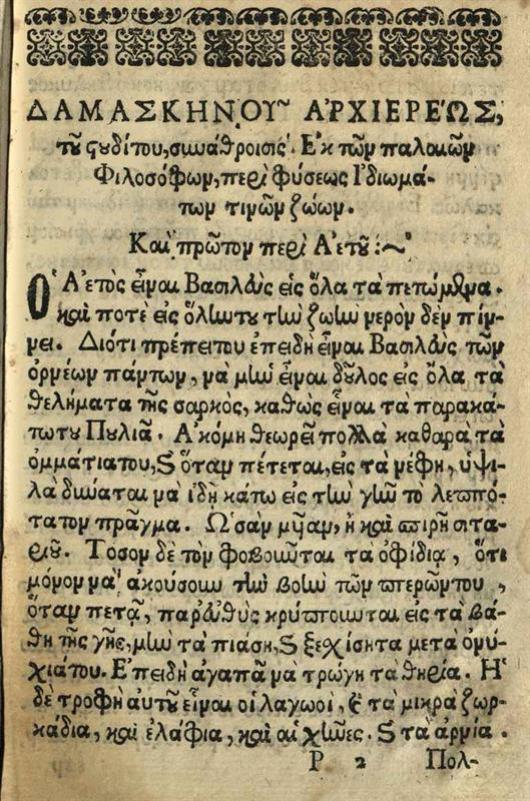 ΔΑΜΑΣΚΗΝΟΥ͂ ἈΡΧΙΕΡΕΏΣ,
τȣ͂ ϛȣδίτου, σιωάθροισις. Ἐκ τῶν παλαιῶν
Φιλοσόφων, περὶ φύσεως Ἰδιωμά-
των τινῶν ζώων.
Καὶ πρῶτον περὶ Ἀετȣ͂ :~
Ὁ Ἀετὸς εἶναι Βασιλεὺς εἰς ὅλα τὰ πετώμενα.
καὶ ποτὲ εἰς ὅλην τȣ τὴν ζωὴν νερὸν δὲν πίν-
νει. Διότι πρέπει του ἐπειδὴ εἶναι Βασιλεὺς τῶν
ὀρνέων πάντων, νὰ μὴν εἶναι δȣ͂λος εἰς ὅλα τὰ
θελήματα τῆς σαρκὸς, καθὼς εἶναι τὰ παρακά-
τω τȣ Πȣλιᾶ. Ἀκόμη θεωρεῖ πολλὰ καθαρὰ τὰ
ὀμμάτια του, ϗ ὅταν πέτεται, εἰς τὰ νέφη, ὑψι-
λὰ δύναται νὰ ἰδῇ κάτω εἰς τὴν γῆν τὸ λεπτό-
τατον πρᾶγμα. Ὡσὰν μῦαν, ἢ καὶ σπιρὴ σιτα-
ρίȣ. Τόσον δὲ τὸν φοβοῦνται τὰ ὀφίδια, ὅτι
μόνον νὰ ἀκούσουν τὴν βοὴν τῶν πτερῶν του,
ὅταν πετᾷ, παρευθὺς κρύπτουνται εἰς τὰ βά-
θη τῆς γῆς, μὴν τὰ πιάσῃ, ϗ ξεχίσῃ τα μετὰ ὀνύ-
χιά του. Ἐπειδὴ ἀγαπᾶ νὰ τρώγη τὰ θηρία. Ἡ
δὲ τροφὴ αὐτȣ͂ εἶναι οἱ λαγωοὶ, ϗ τὰ μικρὰ ζωρ-
κάδια, καὶ ἐλάφια, καὶ αἱ χῆνες. ϗ τὰ ἀρνία.
Ρ 2 Πολ-